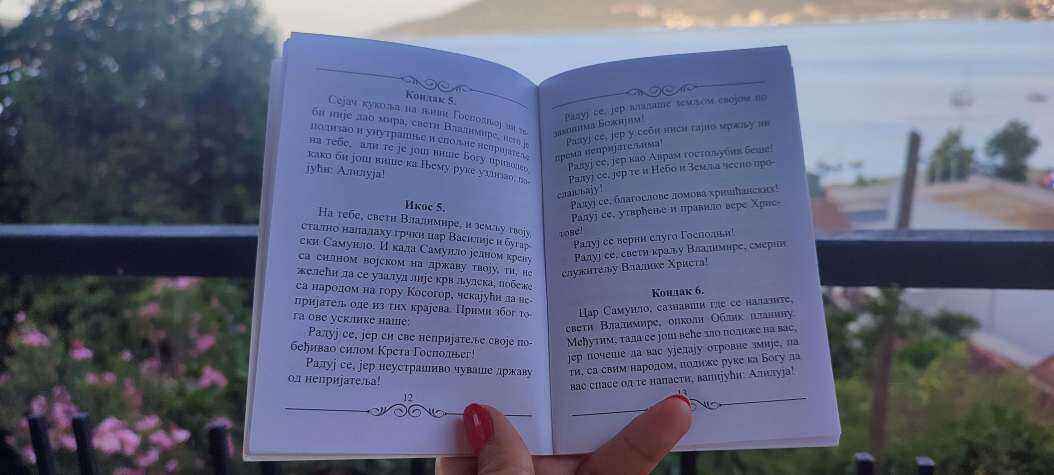 Кондак 5.
Сејач кукоља на њиви Господњој ни те-
би није дао мира, свети Владимире, него је
подизао и унутрашње и спољне непријатеље
на тебе, али те је још више Богу приводио,
како би још више ка Њему руке уздизао, по-
јући: Алилуја!
Икос 5.
На тебе, свети Владимире, и земљу твоју,
стално нападаху грчки цар Василије и бугар-
ски Самуило. И када Самуило једном крену
са силном војском на државу твоју, ти, не
желећи да се узалуд лије крв људска, побеже
са народом на гору Косогор, чекајући да не-
пријатељ оде из тих крајева. Прими због то-
га ове усклике наше:
Радуј се, јер си све непријатеље своје по-
беђивао силом Крста Господњег!
Радуј се, јер неустрашиво чуваше државу
од непријатеља!
12
Радуј се, јер владаше земљом својом по
законима Божијим!
Радуј се, јер у себи ниси тајио мржњу ни
према непријатељима!
Радуј се, јер као Аврам гостољубив беше!
Радуј се, јер те и Небо и Земља честно про-
слављају!
Радуј се, благослове домова хришћанских!
Радуј се, утврђење и правило вере Хрис-
тове!
Радуј се верни слуго Господњи!
Радуј се, свети краљу Владимире, смерни
служитељу Владике Христа!
Кондак 6.
Цар Самуило, сазнавши где се налазите,
свети Владимире, опколи Облик планину.
Међутим, тада се још веће зло подиже на вас,
јер почеше да вас уједају отровне змије, па
ти, са свим народом, подиже руке ка Богу да
вас спасе од те напасти, вапијући: Алилуја!
13